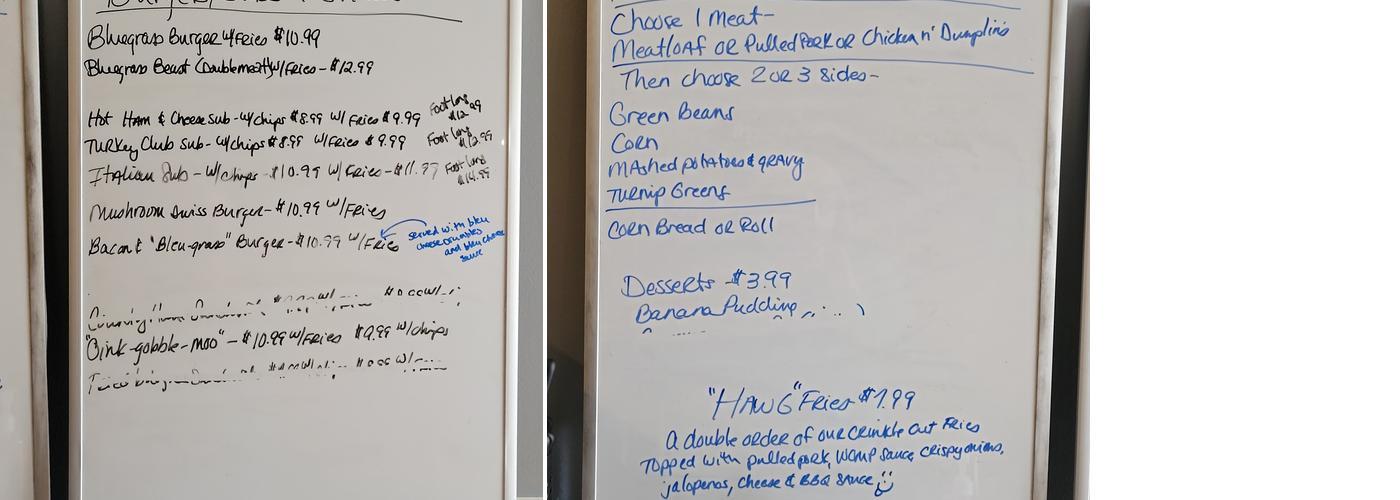 Bluegrass Burger w/Fries $10.99
Bluegrass Beast (Doublemeat) w/Fries - $12.99
Hot Ham & Cheese Sub - w/chips $8.99 w/ Fries $9.99 Foot Long $12.99
Turkey Club Sub - w/chips $8.99 w/Fries $9.99 Foot Long $12.99
Italian Sub - w/chips - $10.99 w/ Fries - $11.99 Foot Long $14.99
Mushroom Swiss Burger - $10.99 w/Fries
Bacon & "Bleu-grass" Burger - $10.99 w/Fries
served with bleu
cheese crumbles
and bleu cheese
sauce
"Oink-gobble-moo" - $10.99 w/Fries $9.99 w/chips
Choose 1 Meat -
Meatloaf or Pulled Pork or Chicken n' Dumplins
Then choose 2 or 3 sides -
Green Beans
Corn
Mashed potatoes & gravy
Turnip Greens
Corn Bread or Roll
Desserts - $3.99
Banana Pudding
"HAWG" Fries $7.99
A double order of our crinkle cut Fries
Topped with pulled pork, WOMP sauce, crispy onions,
jalapenos, cheese & BBQ sauce